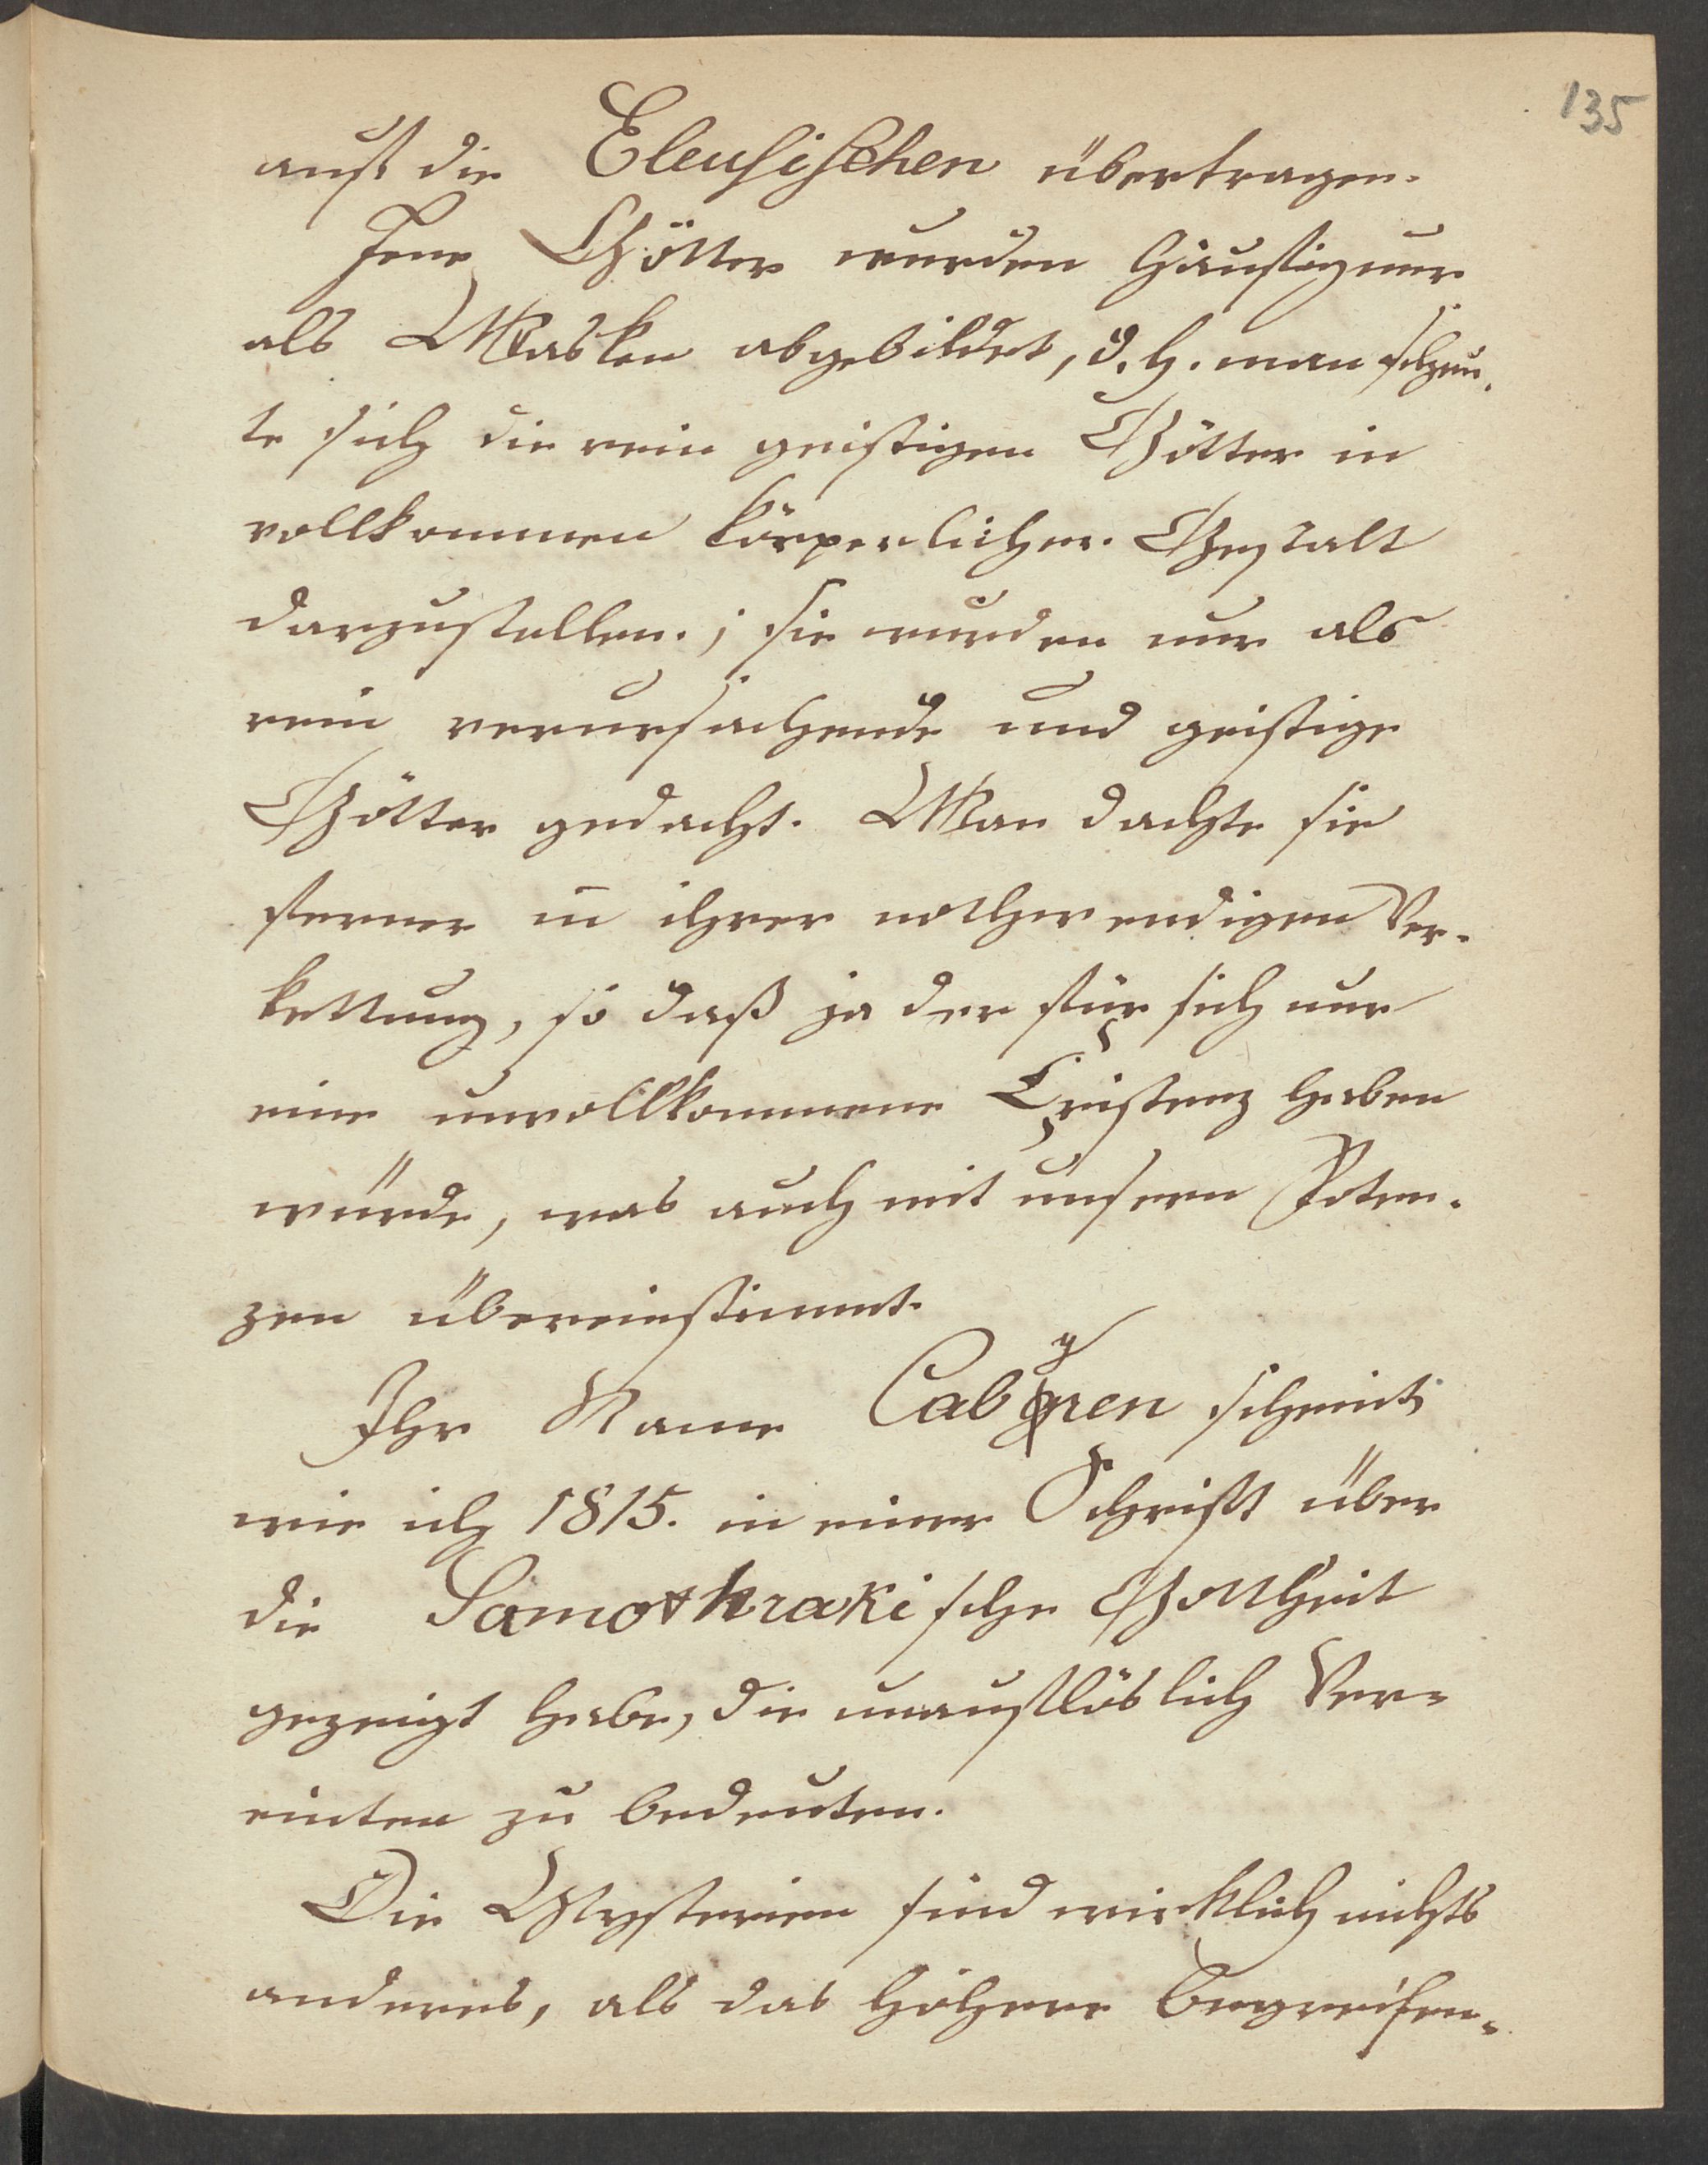 135
auf die Eleusischen übertragen.
Jene Götter wurden häufig nur
als Masken abgebildet, d. h. man scheu-
te sich die rein geistigen Götter in
vollkommen körperlicher Gestalt
darzustellen.; sie wurden nur als
rein verursachende und geistige
Götter gedacht. Man dachte sie
ferner in ihrer nothwendigen Ver-
kettung, so daß jeder für sich nur
eine unvollkommene Existenz haben
würde, was auch mit unsern Poten-
zen übereinstimmt.
Ihr Name Cabyren scheint
wie ich 1815. in einer Schrift über
die Samothrakische Gottheit
gezeigt habe, die unauflöslich Ver-
einten zu bedeuten.
Die Mysterien sind wirklich nichts
anderes, als das höhere Begreifen-